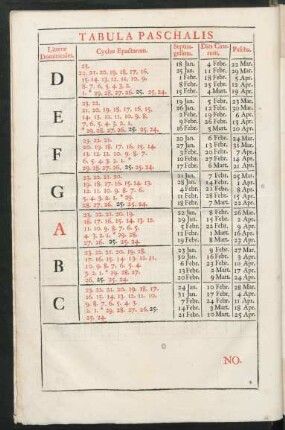 TABULA PASCHALIS
Litteræ Dominicales.
Cyclus Epactarum.
Septua-gesima.
Dies Cinerum.
Pascha.
D
23.
22. 21. 20. 19. 18. 17. 16.
15. 14. 13. 12. 11. 10. 9.
8. 7. 6. 5. 4. 3. 2.
1. * 29. 28. 27. 26. 25. 25. 24.
18 Jan. 4 Febr. 22 Mar.
25 Jan. 11 Febr. 29 Mar.
1 Febr. 18 Febr. 5 Apr.
8 Febr. 25 Febr. 12 Apr.
15 Febr. 4 Mart. 19 Apr.
E
23. 22.
21. 20. 19. 18. 17. 16. 15.
14. 13. 12. 11. 10. 9. 8.
7. 6. 5. 4. 3. 2. 1.
* 29. 28. 27. 26. 25. 25. 24.
19 Jan. 5 Febr. 23 Mar.
26 Jan. 12 Febr. 30 Mar.
2 Febr. 19 Febr. 6 Apr.
9 Febr. 26 Febr. 13 Apr.
16 Febr. 5 Mart. 20 Apr.
F
23. 22. 21.
20. 19. 18. 17. 16. 15. 14.
13. 12. 11. 10. 9. 8. 7.
6. 5. 4. 3. 2. 1. *
29. 28. 27. 26. 25. 25. 24.
20 Jan. 6 Febr. 24 Mar.
27 Jan. 13 Febr. 31 Mar.
3 Febr. 20 Febr. 7 Apr.
10 Febr. 27 Febr. 14 Apr.
17 Febr. 6 Mart. 21 Apr.
G
23. 22. 21. 20.
19. 18. 17. 16. 15. 14. 13.
12. 11. 10. 9. 8. 7. 6.
5. 4. 3. 2. 1. * 29.
28. 27. 26. 25. 25. 24.
21 Jan. 7 Febr. 25 Mar.
28 Jan. 14 Febr. 1 Apr.
4 Febr. 21 Febr. 8 Apr.
11 Febr. 28 Febr. 15 Apr.
18 Febr. 7 Mart. 22 Apr.
A
23. 22. 21. 20. 19.
18. 17. 16. 15. 14. 13. 12.
11. 10. 9. 8. 7. 6. 5.
4. 3. 2. 1. * 29. 28.
27. 26. 25. 25. 24.
22 Jan. 8 Febr. 26 Mar.
29 Jan. 15 Febr. 2 Apr.
5 Febr. 22 Febr. 9 Apr.
12 Febr. 1 Mart. 16 Apr.
19 Febr. 8 Mart. 23 Apr.
B
23. 22. 21. 20. 19. 18.
17. 16. 15. 14. 13. 12. 11.
10. 9. 8. 7. 6. 5. 4.
3. 2. 1. * 29. 28. 27.
26. 25. 25. 24.
23 Jan. 9 Febr. 27 Mar.
30 Jan. 16 Febr. 3 Apr.
6 Febr. 23 Febr. 10 Apr.
13 Febr. 2 Mart. 17 Apr.
20 Febr. 9 Mart. 24 Apr.
C
23. 22. 21. 20. 19. 18. 17.
16. 15. 14. 13. 12. 11. 10.
9. 8. 7. 6. 5. 4. 3.
2. 1. * 29. 28. 27. 26. 25.
25. 24.
24 Jan. 10 Febr. 28 Mar.
31 Jan. 17 Febr. 4 Apr.
7 Febr. 24 Febr. 11 Apr.
14 Febr. 3 Mart. 18 Apr.
21 Febr. 10 Mart. 25 Apr.
NO-